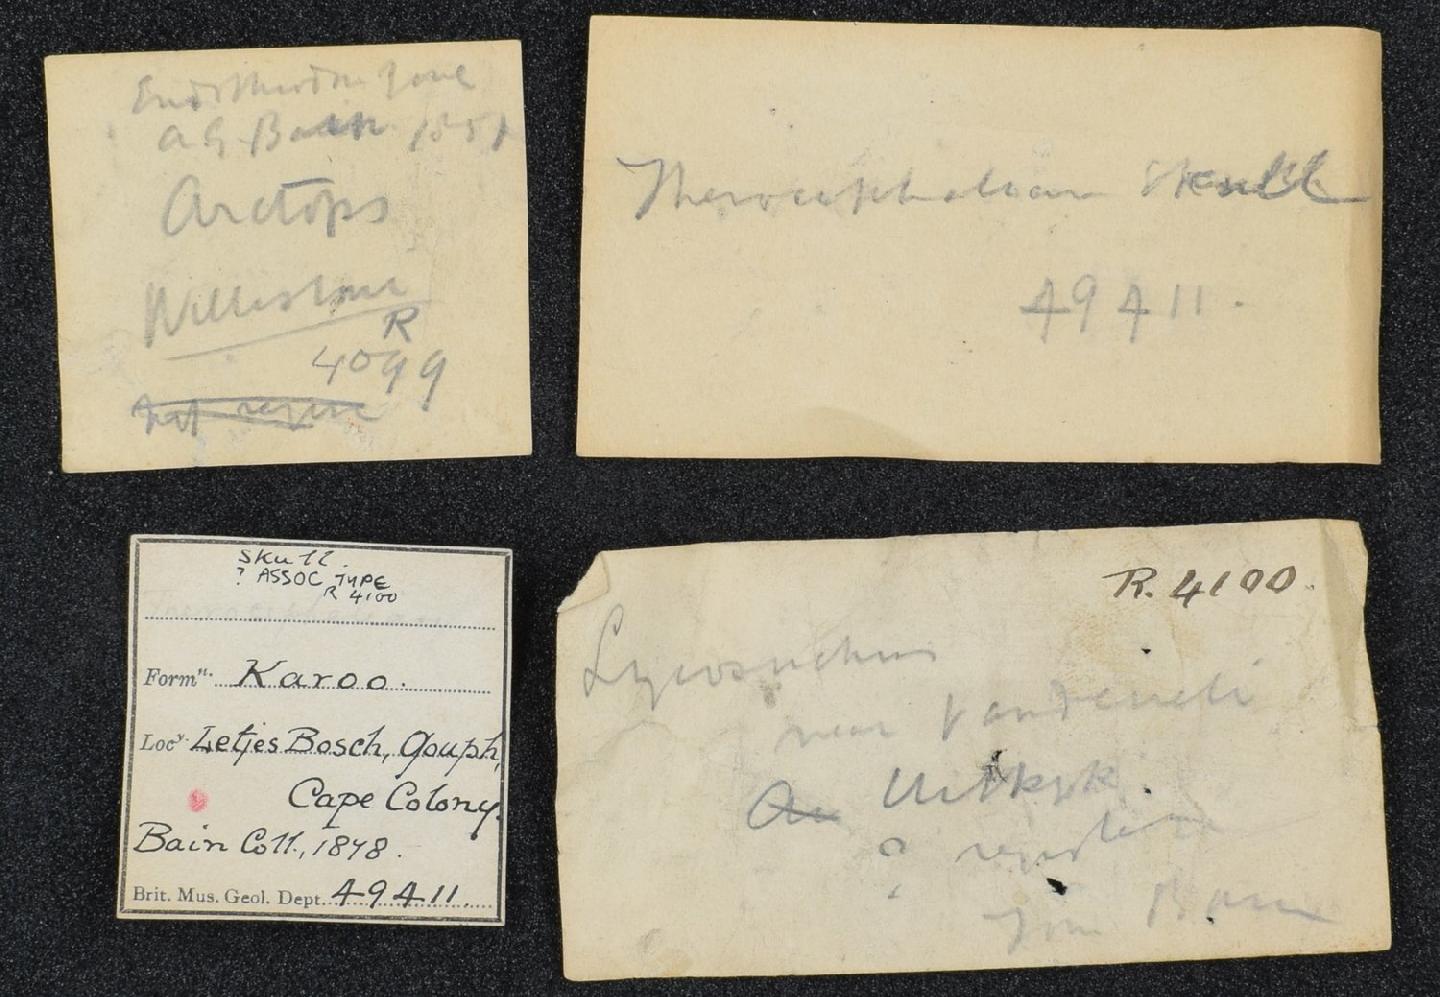 Endothiodon Zone
A G Bain 1851
Arctops
Willistoni
R
4099
Therocephalian Skull
49411.
Skull.
? ASSOC TYPE
R 4100
Formn. Karoo.
Locy. Letjes Bosch, Gouph,
Cape Colony.
Bain Coll., 1878.
Brit. Mus. Geol. Dept. 49411.
R. 4100.
Lycosuchus
near Vanderrieti
Uitkyk.
?
Tom Bain